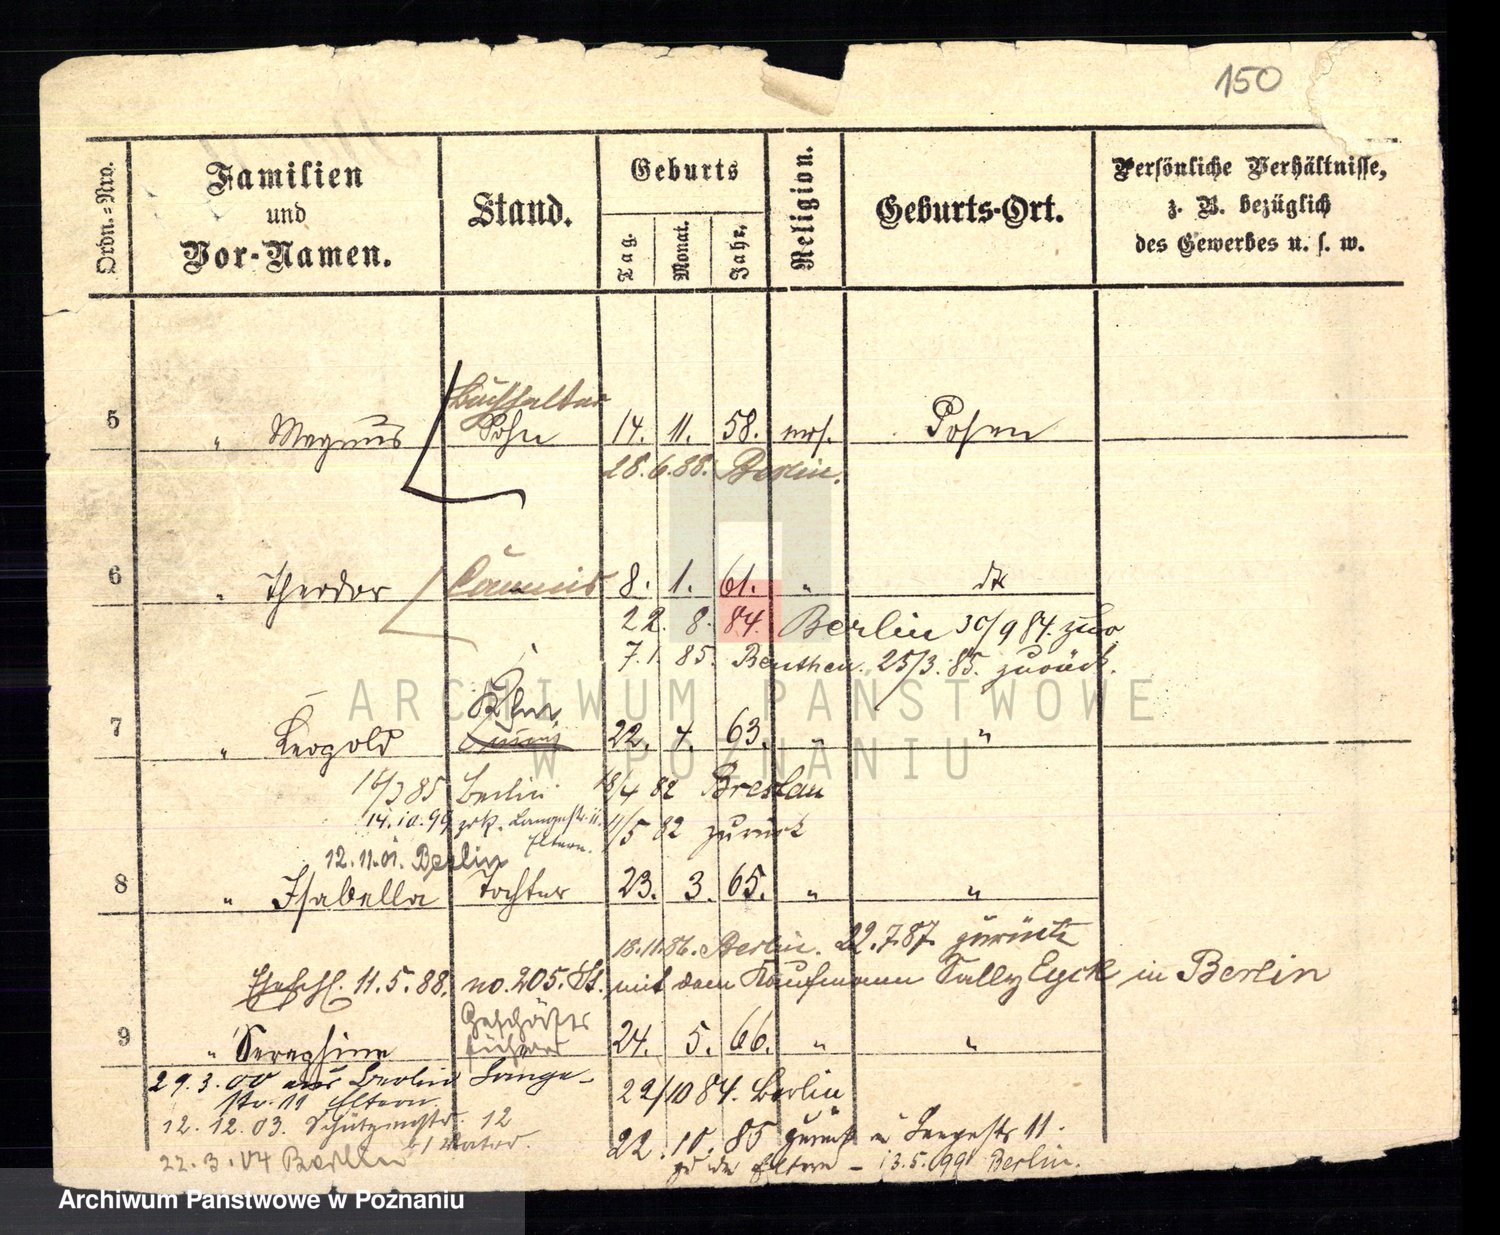 150
Ordn.=Nro.
Familien
und
Vor-Namen.
Stand.
Geburts
Tag.
Monat.
Jahr.
Religion.
Geburts-Ort.
Persönliche Verhältnisse,
z. B. bezüglich
des Gewerbes u. s. w.
Buchhalter
5 " Magnus Sohn 14. 11. 58. mos. Posen
28. 6. 88. Berlin.
6 " Theodor Commis 8. 1. 61. " dto
22. 8. 84. Berlin 30/9 84. zur.
7. 1. 85. Beuthen. 25/3. 85. zurück.
7 " Leopold 22. 4. 63. " "
16/3 85 Berlin 18/4 82 Breslau
14.10.99 zrk. Langestr. 11. 11/5 82 zurück
Eltern.
12.11.01. Berlin
8 " Isabella Tochter 23. 3. 65. " "
18.11.86. Berlin. 22.7.87. zurück
Eheschl. 11.5.88. no. 205. St. mit dem Kaufmann Sally Eyck in Berlin
Geschäfts
9 " Seraphine führerin 24. 5. 66. " "
29.3.00 aus Berlin Lange-
str. 11 Eltern.
22/10 84. Berlin
12.12.03. Schützenstr. 12
22. 10. 85 zurück Langestr 11.
zu den Eltern – 13.5.99 Berlin.
22.3.04 Berlin
ARCHIWUM PAŃSTWOWE
W POZNANIU
Archiwum Państwowe w Poznaniu